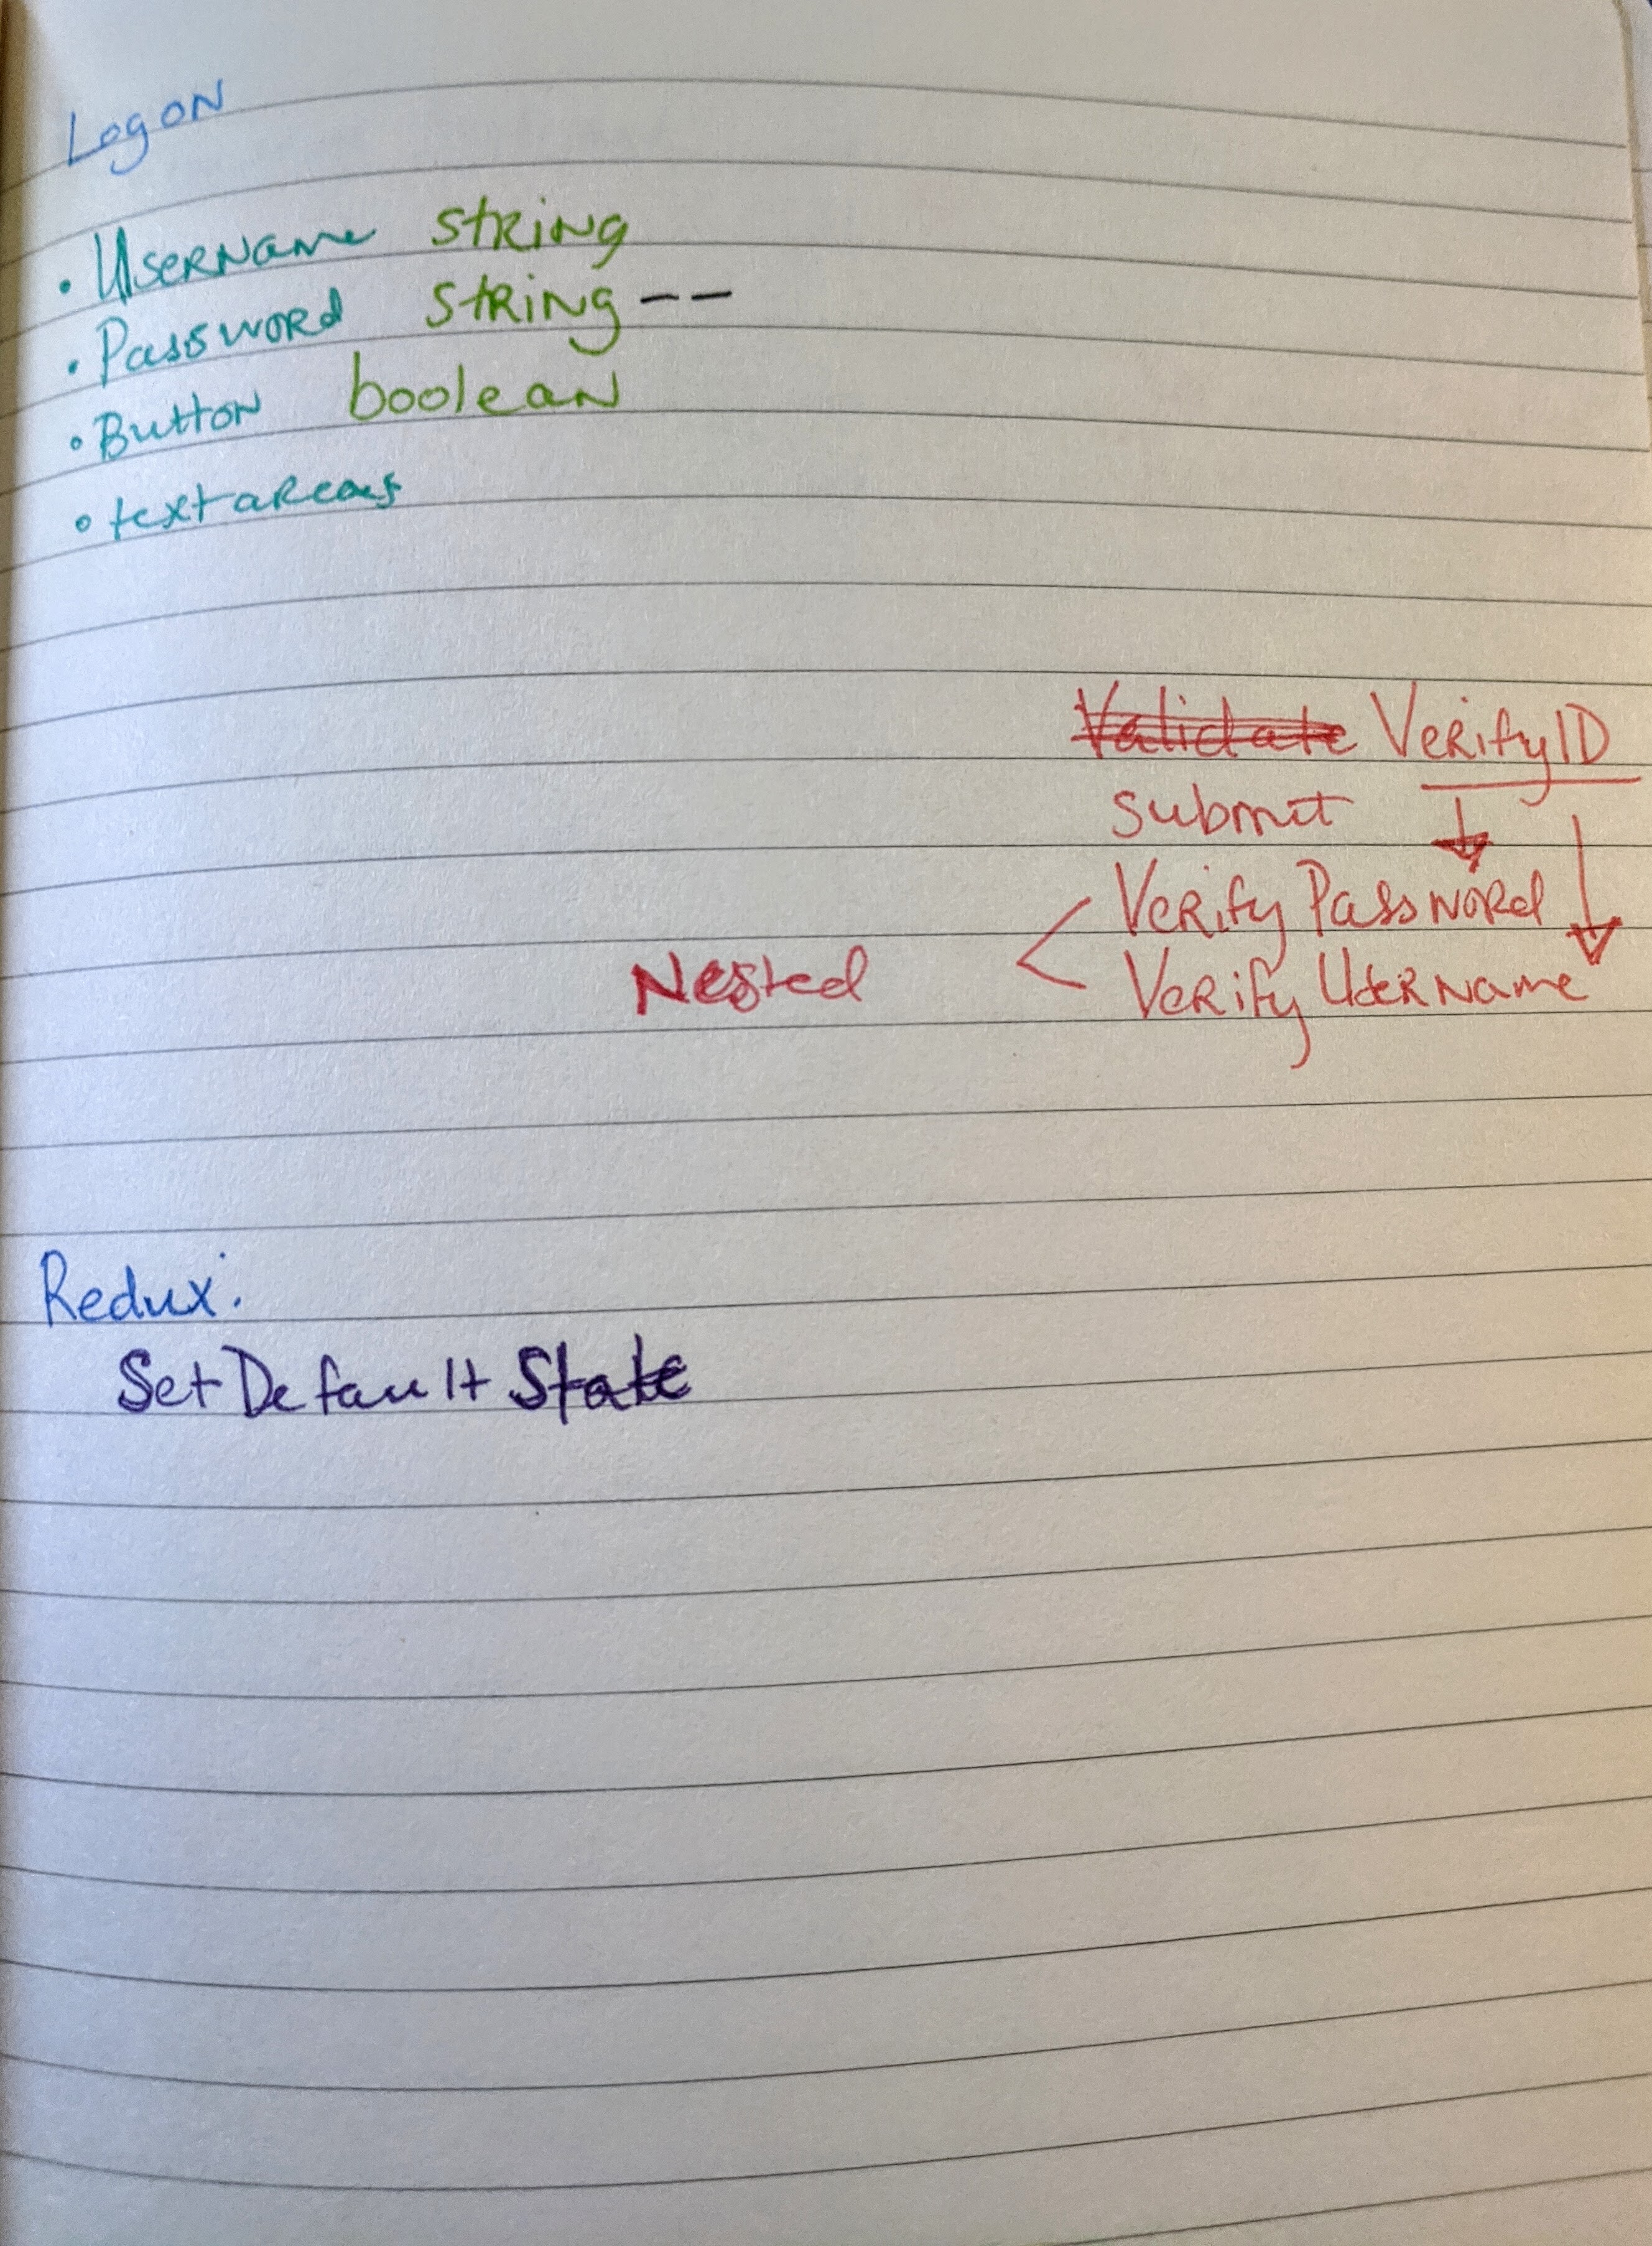 Logon
• Username string
• Password string --
• Button boolean
• textareas
Validate VerifyID
submit
Verify Password
Nested
Verify Username
Redux:
SetDefault State